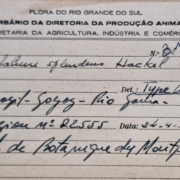 FLORA DO RIO GRANDE DO SUL
RBÁRIO DA DIRETORIA DA PRODUÇÃO ANIMA
RETARIA DA AGRICULTURA, INDÚSTRIA E COMÉR
N.º
splendens Hackel
Det: Type
Rio
Nº 22555 Data: 24-4-
de Botanique de Montp